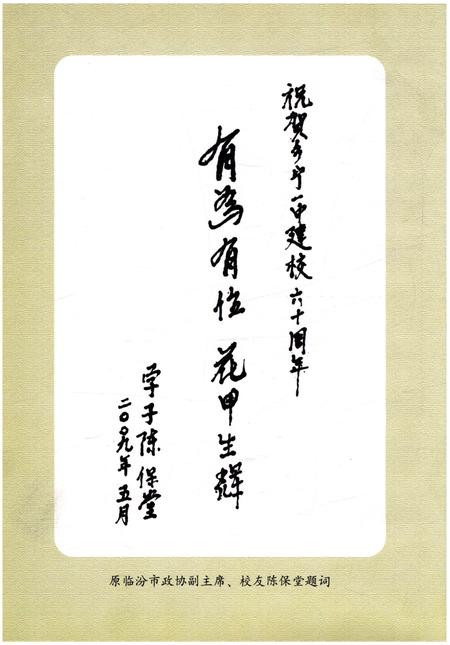 祝贺乡宁一中建校六十周年
有為有位 花甲生辉
学子陈保堂
二〇〇九年五月
原临汾市政协副主席、校友陈保堂题词